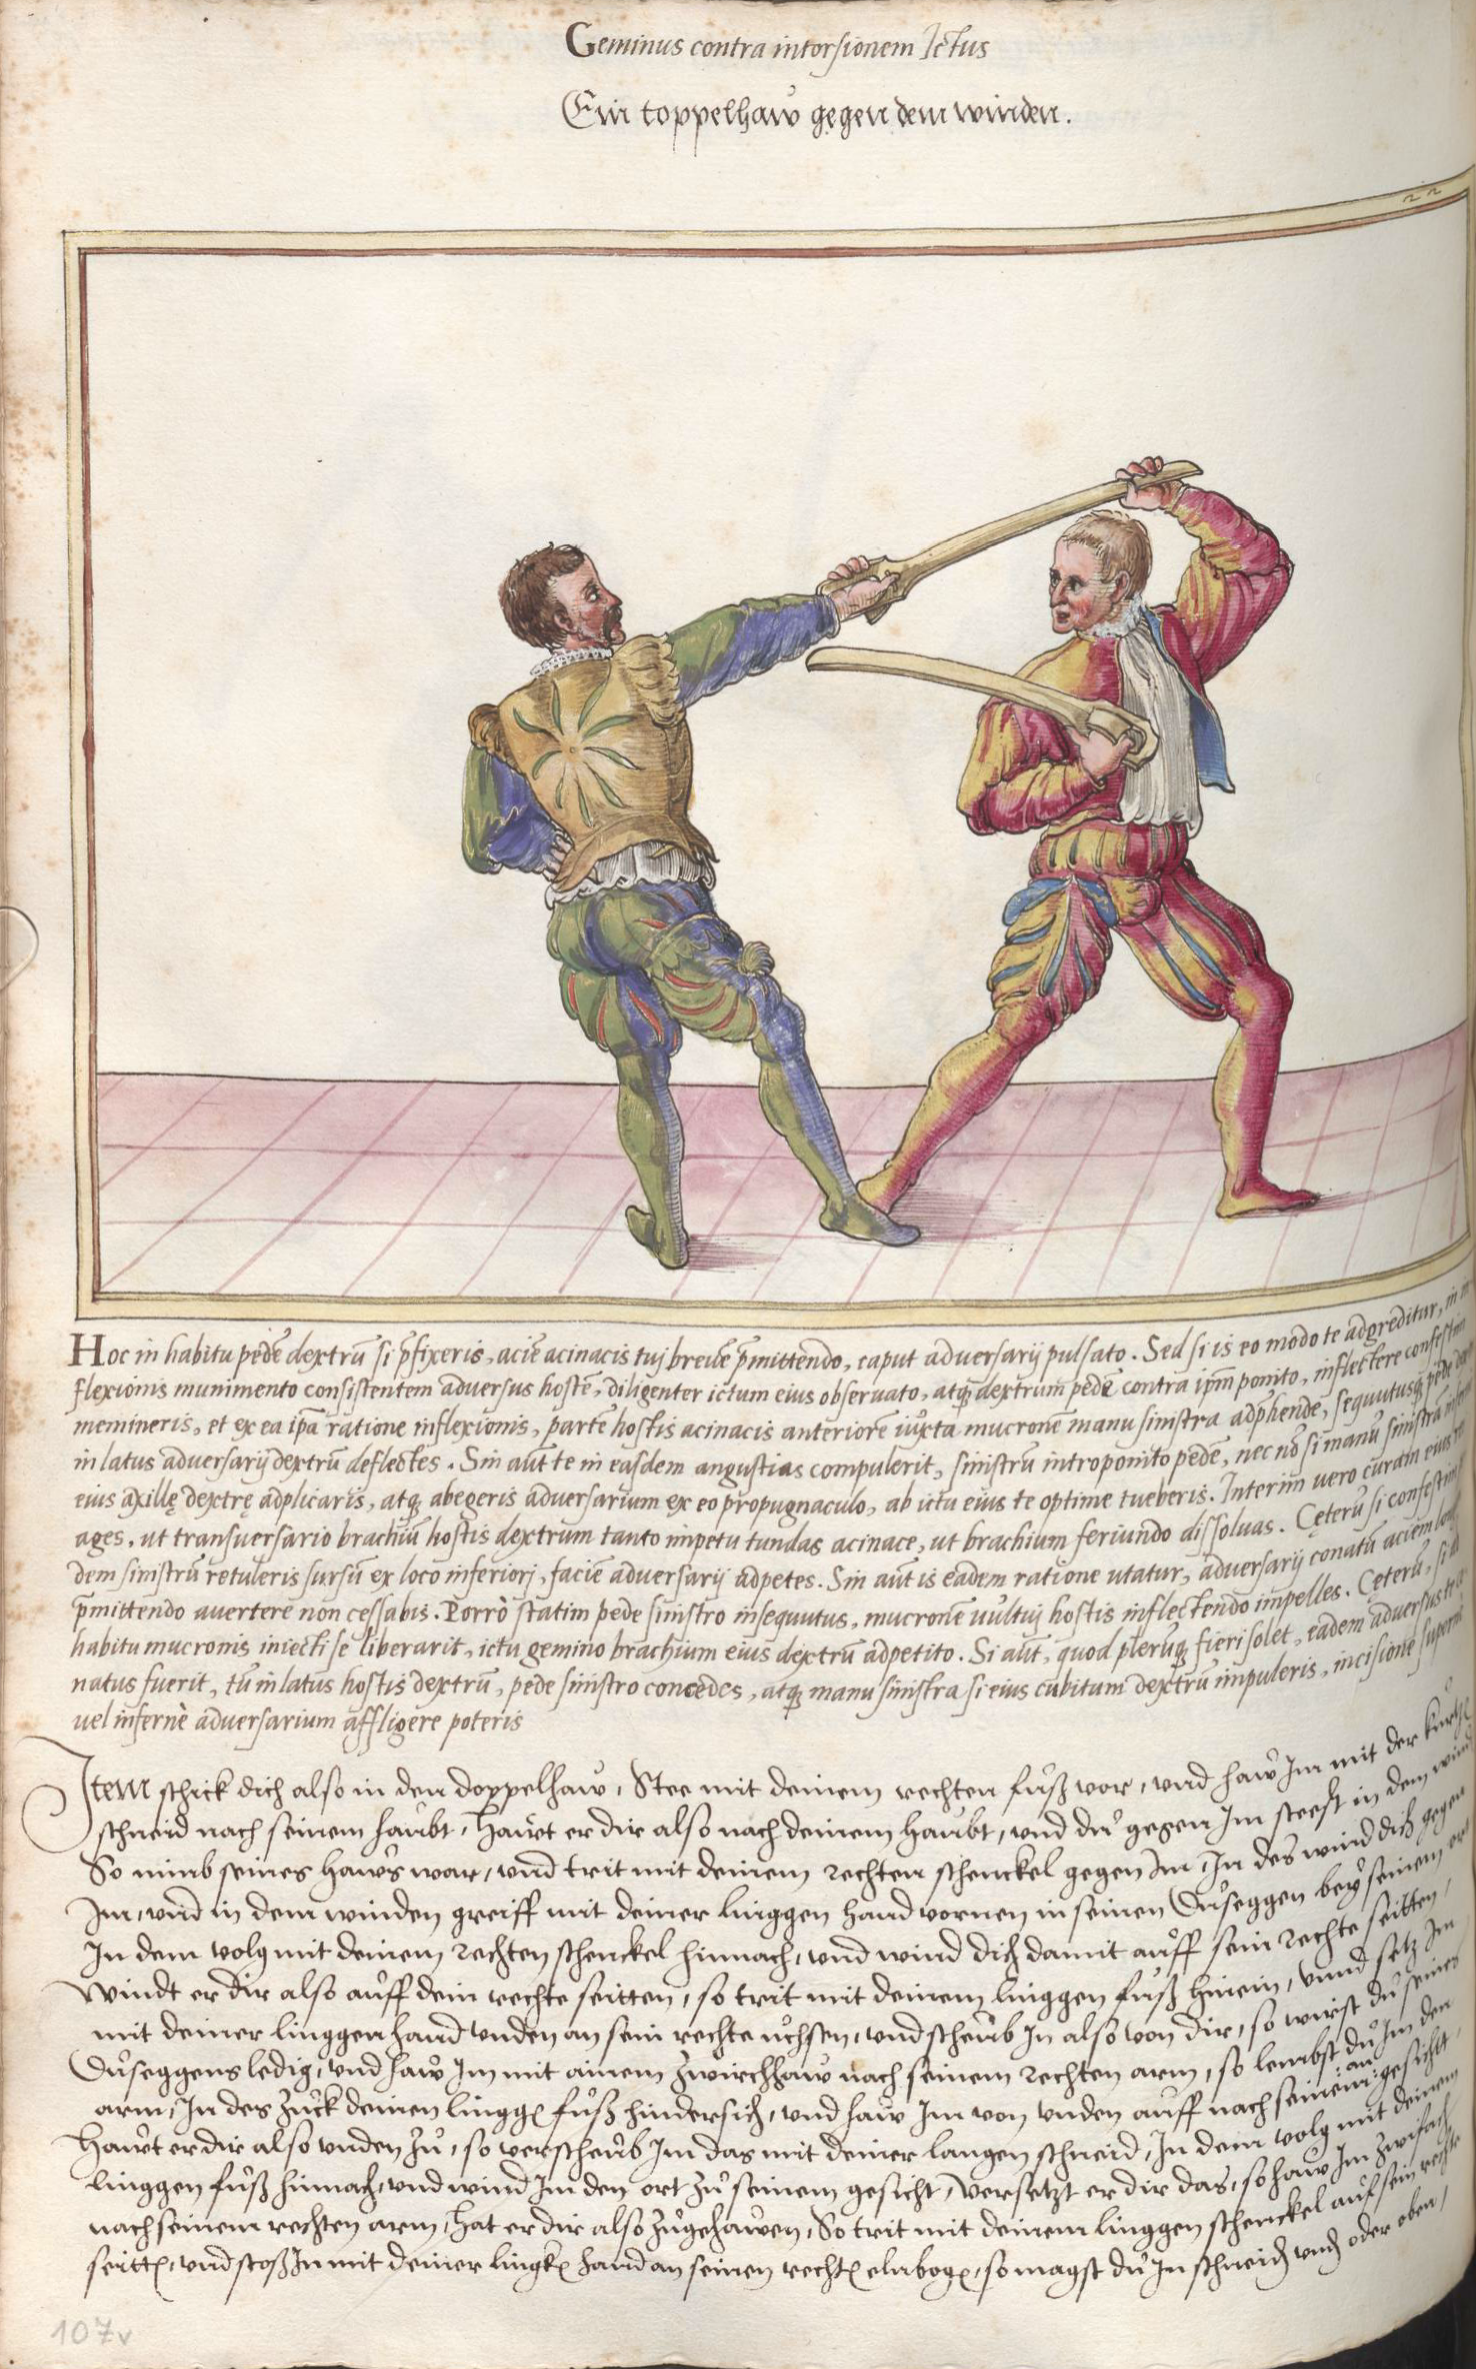 Geminus contra intorsionem Ictus
Ein toppelhaw gegen dem winden.
22
Hoc in habitu pedē dextrū si p̄fixeris, aciē acinacis tuj breuē p̄mittendo, caput adversarij pulsato. Sed si is eo modo te adgreditur, in
flexionis munimento consistentem adversus hostē, diligenter ictum eius observato, atq; dextrum pedē contra ipm̄ ponito, inflectere confestim
memineris, et ex ea ipa ratione inflexionis, partē hostis acinacis anteriorē iuxta mucronē manu sinistra adphende, sequutusq; pede
in latus adversarij dextrū deflectes. Sin aut̄ te in easdem angustias compulerit, sinistrū introponito pedē, nec nō si manū sinistrā
eius axillę dextrę adplicaris, atq; abegeris adversarium ex eo propugnaculo, ab ictu eius te optime tueberis. Interim vero curam eius
ages, ut transuersario brachiū hostis dextrum tanto impetu tundas acinace, ut brachium feriundo dissoluas. Cęterū si confestim
dem sinistrū retuleris sursū ex loco inferiorj, faciē adversarij adpetes. Sin aut̄ is eadem ratione utatur, adversarij conatū aciem
p̄mittendo auertere non cessabis. Porrò statim pede sinistro insequutus, mucronē vultuj hostis inflectendo impelles. Cęterū, si
habitu mucronis iniecti se liberarit, ictu gemino brachium eius dextrū adpetito. Si aut̄, quod plerūq; fieri solet, eadem adversus te
natus fuerit, tū in latus hostis dextrū, pede sinistro concedes, atq; manu sinistra si eius cubitum dextrū impuleris, incisione supernè
uel infernè adversarium affligere poteris
Item schick dich also in den doppelhaw, Stee mit deinem rechten fuͦß vor, vnd haw Im mit der kurtz
schneid nach seinem haubt, Hawt er dir also nach deinem haubt, vnd du gegen Im steest in dem wind
So nimb seines haws war, vnd trit mit deinem rechten schenckel gegen Im, In des wind dich gegen
Im, vnd in dem winden greiff mit deiner linggen hand vornen in seinen Duseggen bey seinem ort
In dem volg mit deinem rechten schenckel hinnach, vnd wind dich damit auff sein rechte seitten,
Windt er dir also auff dein rechte seitten, so trit mit deinem linggen fuͦß hinein, vnnd setz Im
mit deiner linggen hand vnden an sein rechte uchsen, vnd scheub In also von dir, so wirst du seines
Duseggens ledig, vnd haw Im mit ainem zwirchhaw nach seinem rechten arm, so lembst du Im den
arm, In des zuck deinen lingge fuͦß hindersich, vnd haw Im von vnden auff nach seinem angesicht
Hawt er dir also vnden zuͦ, so verscheub Im das mit deiner langen schneid, In dem volg mit deinem
linggen fuͦß hinnach, vnd wind Im den ort zuͦ seinem gesicht, Versetzt er dir das, so haw Im zwifach
nach seinem rechten arm, Hat er dir also zuͦgehawen, So trit mit deinem linggen schenckel auf sein rechte
seitte, vnd stoß In mit deiner lingke hand an seinen rechte elnboge, so magst du In schneide vnde oder oben,
107v